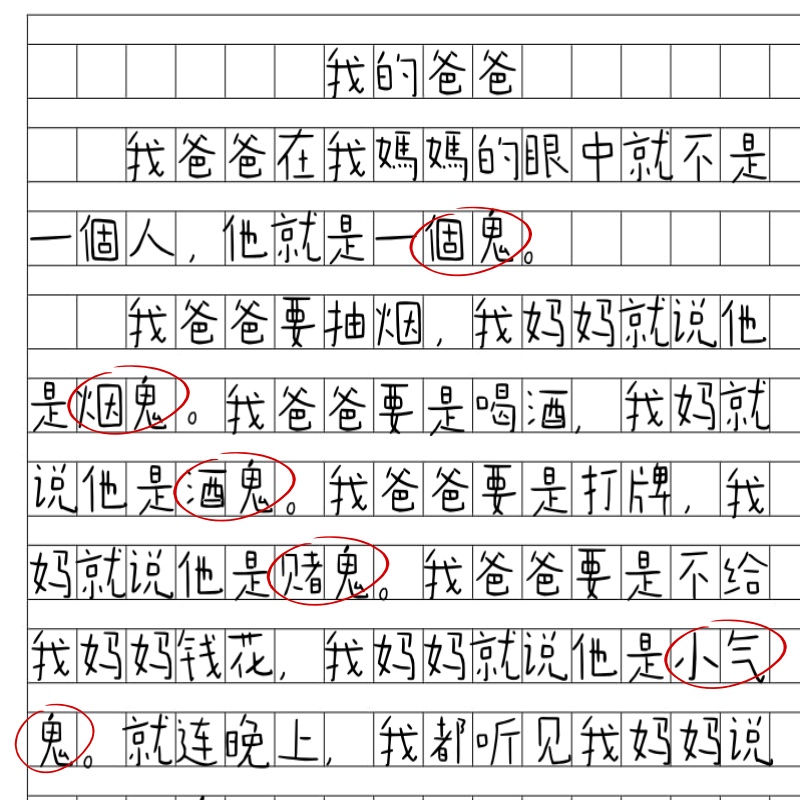 我的爸爸
我爸爸在我媽媽的眼中就不是
一個人，他就是一個鬼。
我爸爸要抽烟，我妈妈就说他
是烟鬼。我爸爸要是喝酒，我妈就
说他是酒鬼。我爸爸要是打牌，我
妈就说他是赌鬼。我爸爸要是不给
我妈妈钱花，我妈妈就说他是小气
鬼。就连晚上，我都听见我妈妈说